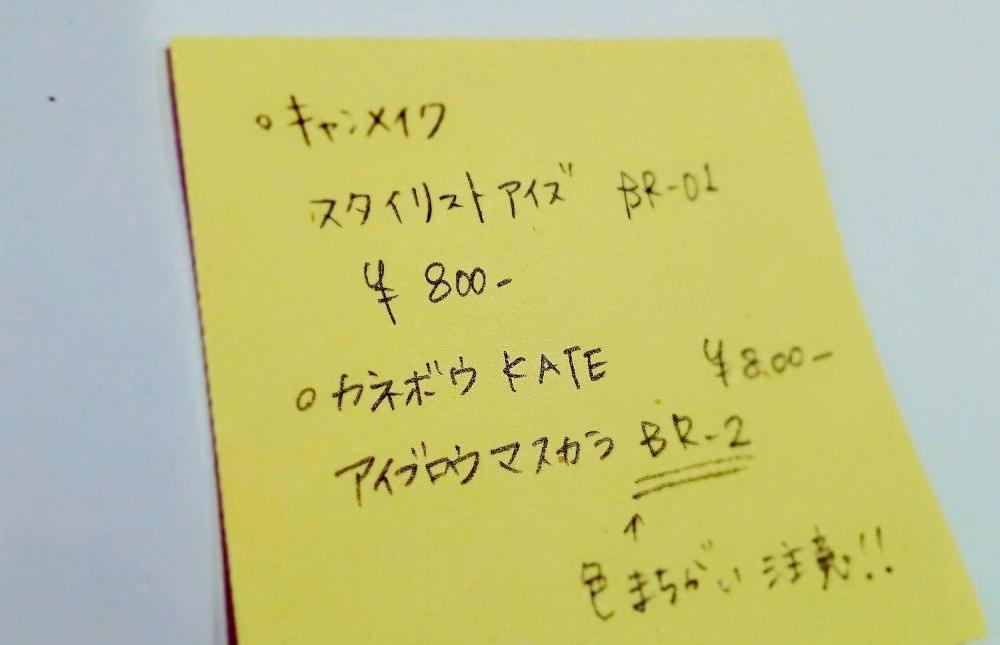 ○キャンメイク
スタイリストアイズ BR-01
¥800-
○カネボウ KATE ¥800-
アイブロウマスカラ BR-2
↑
色まちがい注意!!